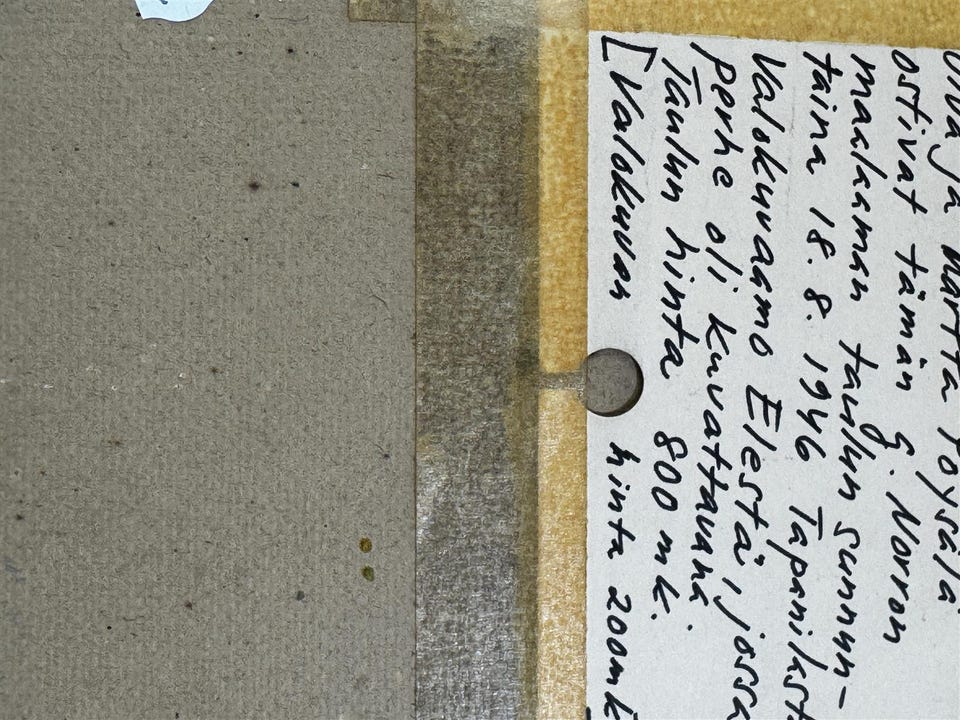 ja Martta Pöysälä
ostivat tämän G. Norron
maalaaman taulun sunnun-
taina 18.8. 1946 Tapanilast
Valokuvaamo Elestä, jossa
perhe oli kuvattavana
Taulun hinta 800 mk.
[Valokuvan hinta 200mk